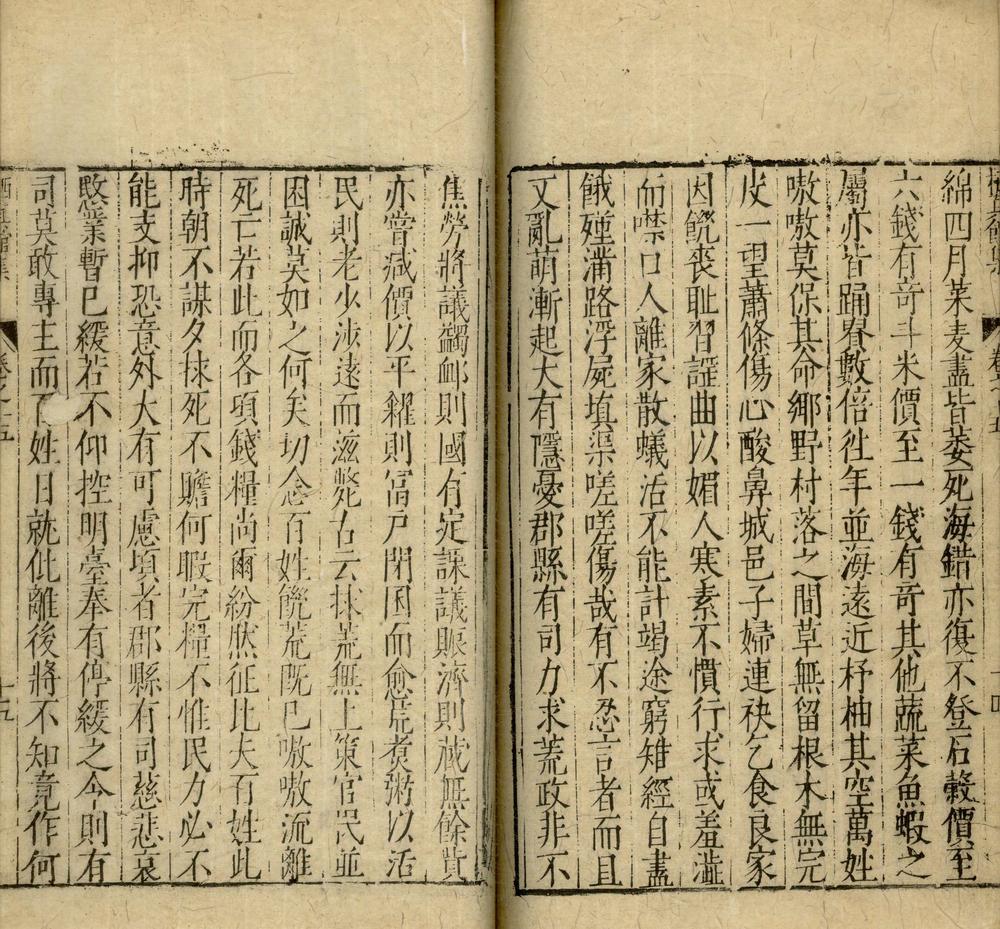 綿四月菜麦盡皆萎死海錯亦復不登石榖價至
六錢有奇斗米價至一錢有奇其他蔬菜魚蝦之
屬亦皆踊眘數倍徃年並海遠近杼柚其空萬姓
嗷嗷莫保其命鄉野村落之間草無留根木無完
皮一望蕭條傷心酸鼻城邑子婦連袂乞食良家
因饑喪耻習謳曲以媚人寒素不慣行求或羞澁
而噤口人離家散蟻活不能計竭途窮雉經自盡
餓殣滿路浮屍填渠嗟嗟傷哉有不忍言者而且
又亂萌漸起大有隱憂郡縣有司力求荒政非不
焦勞將議蠲䘏則國有定課議賑濟則藏無餘貲
亦嘗减價以平糴則冨户閉囷而愈荒煮粥以活
民則老少涉遠而滋斃古云抹荒無上策官民並
困誠莫如之何矣切念百姓饑荒既已嗷嗷流離
死亡若此而各項錢糧尚爾紛然征比夫百姓此
時朝不謀夕捄死不贍何暇完糧不惟民力必不
能支抑恐意外大有可慮頃者郡縣有司慈悲哀
愍業暫已緩若不仰控明臺奉有停緩之令則有
司莫敢專主而百姓日就仳離後將不知竟作何